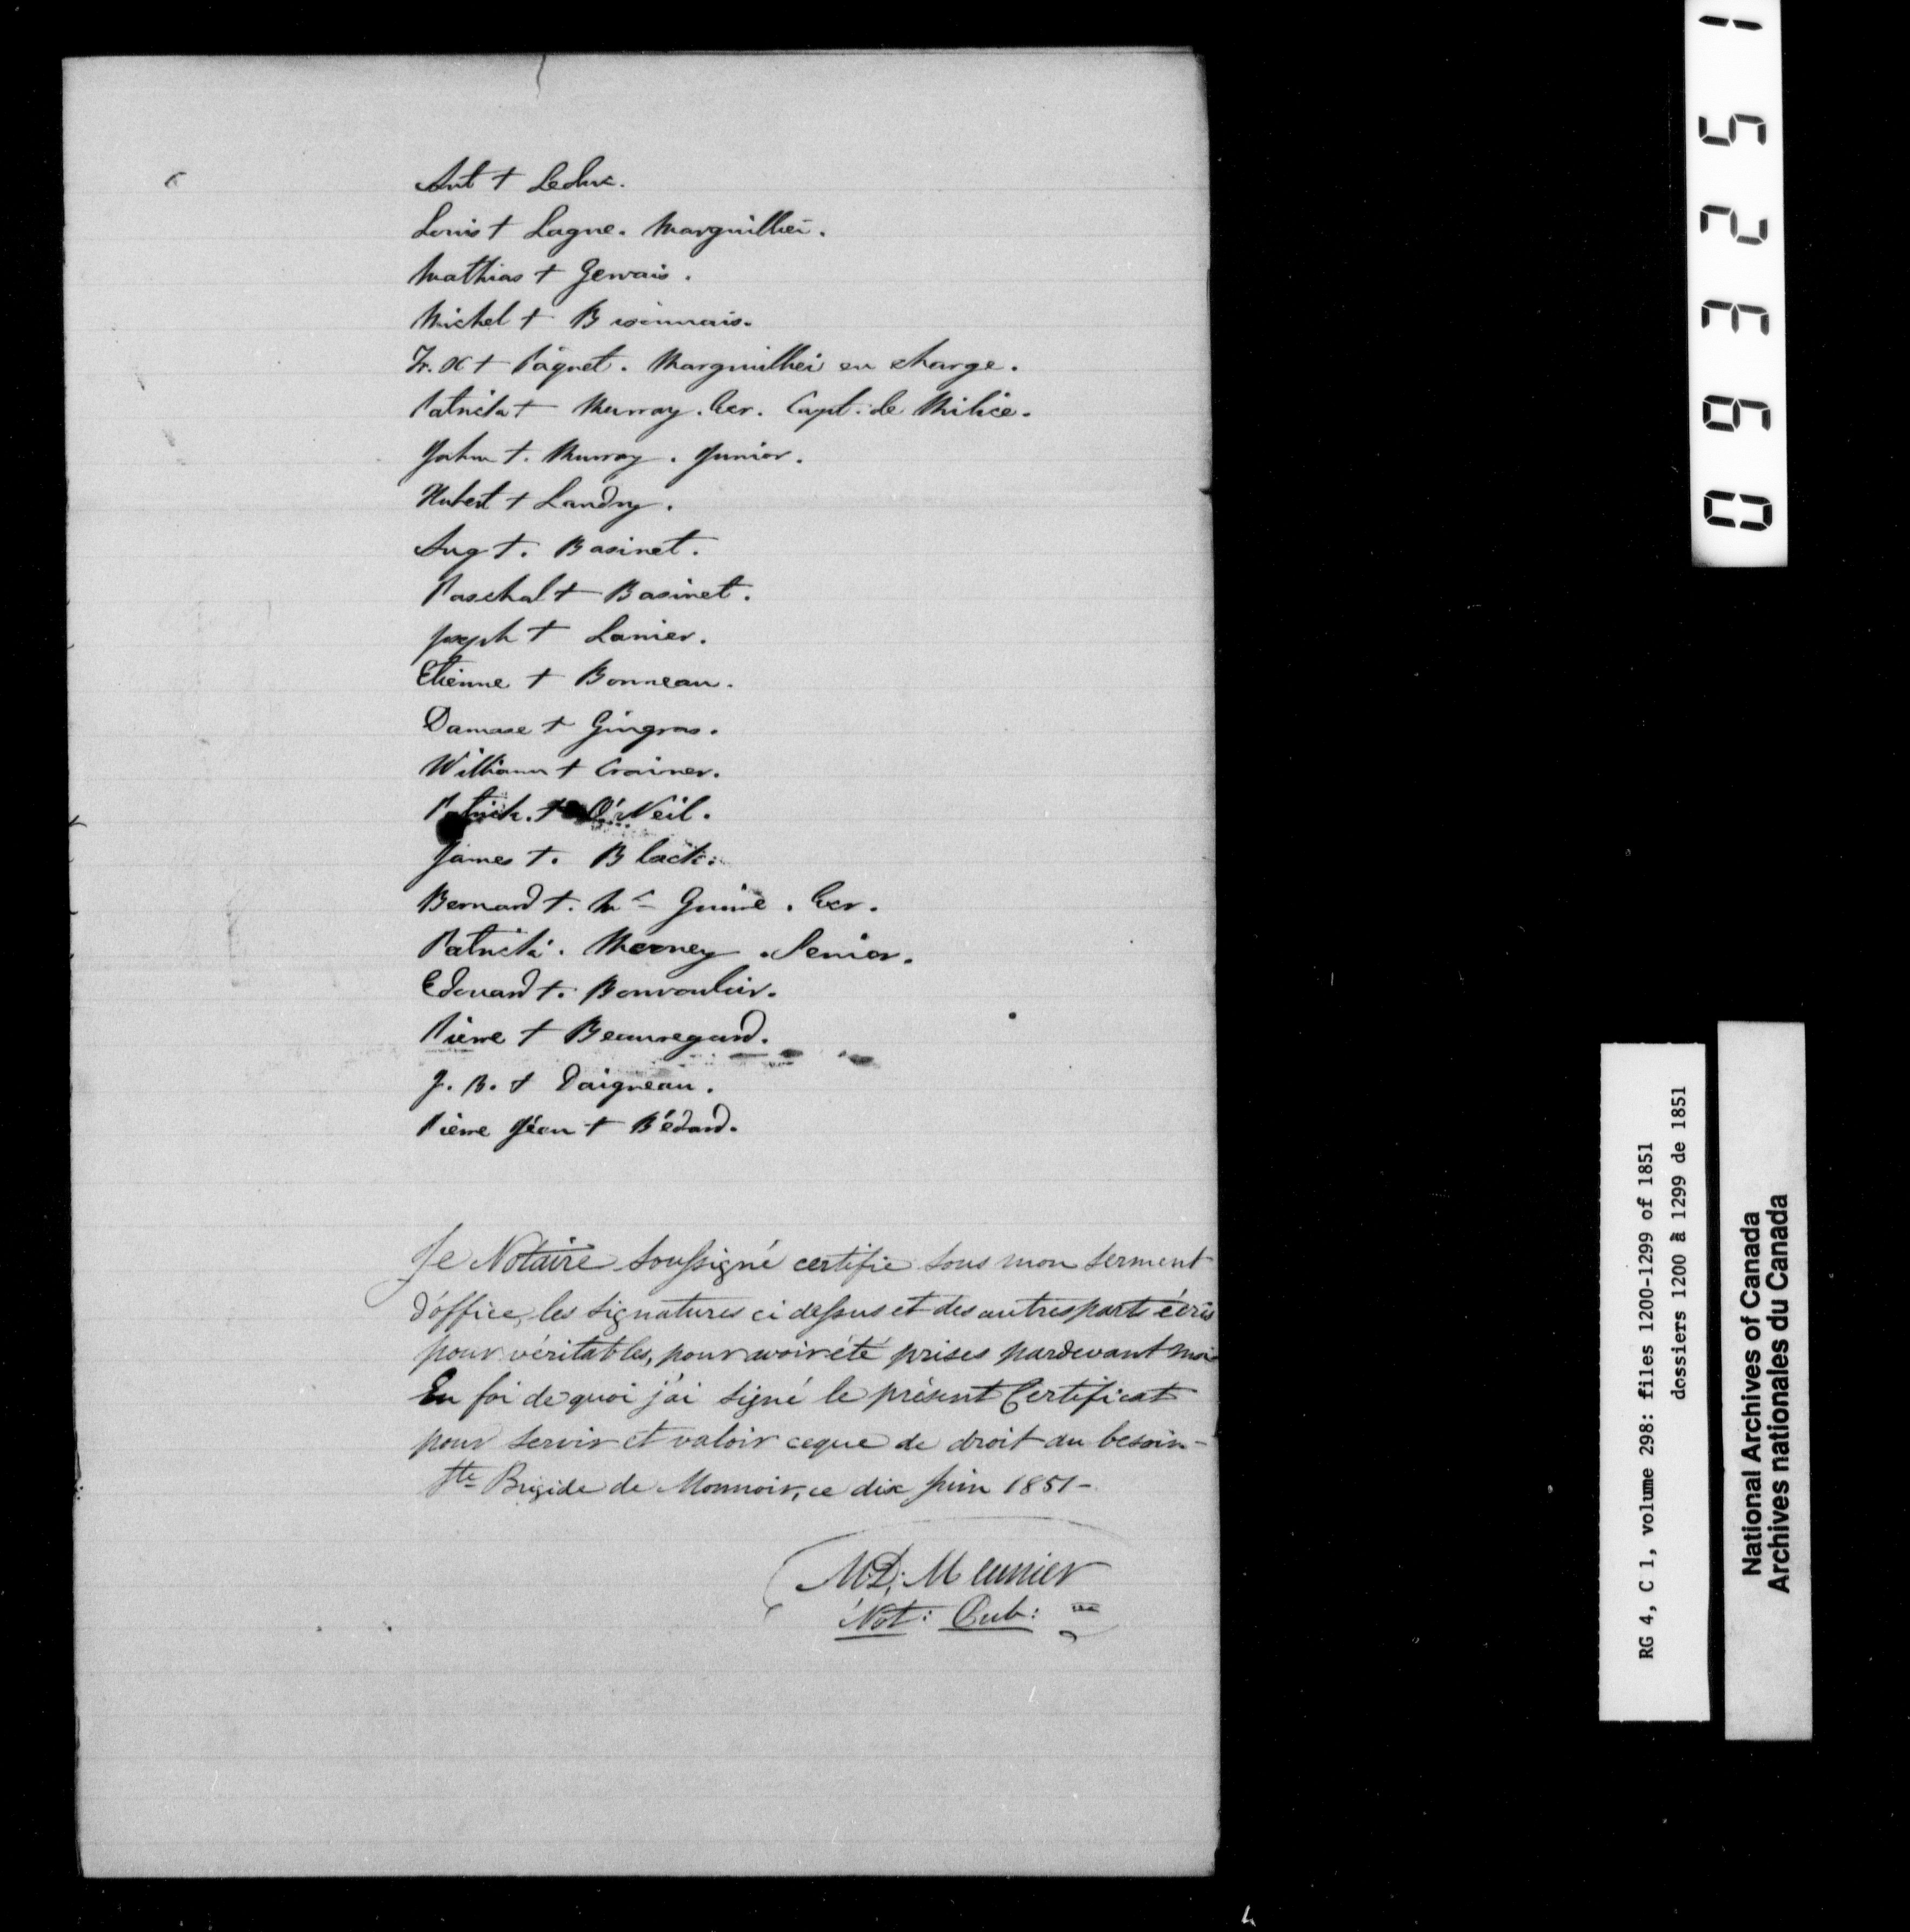 Ant + Leduc.
Louis + Lague. Marguillier.
Mathias + Gervais.
Michel + Bisonnais.
Fr. X + Paquet. Marguillier en charge.
Patrick + Murray. Ecr. Capt. de Milice.
John +. Murray. Junior.
Hubert + Landry.
Aug +. Basinet.
Paschal + Basinet.
Joseph + Lanier.
Etienne + Bonneau.
Damase + Gingras.
William + Crainer.
Patrick. + O'Neil.
James +. Black.
Bernard +. Mc Guire. Ecr.
Patrick. Merney. Senior.
Edouard +. Bonvoulier.
Pierre + Beauregard.
J. B. + Daigneau.
Pierre Jéan + Bédard.
Je Notaire Soussigné certifie sous mon serment
d'office, les signatures ci dessus et des autres parts écris
pour véritables, pour avoir été prises pardevant moi
En foi de quoi j'ai signé le présent Certificat
pour servir et valoir ceque de droit au besoin -
Ste Brigide de Monnoir, ce dix Juin 1851 -
M.D. Meunier
Not: Pub:
093251
RG 4, C 1, volume 298: files 1200-1299 of 1851
dossiers 1200 à 1299 de 1851
National Archives of Canada
Archives nationales du Canada